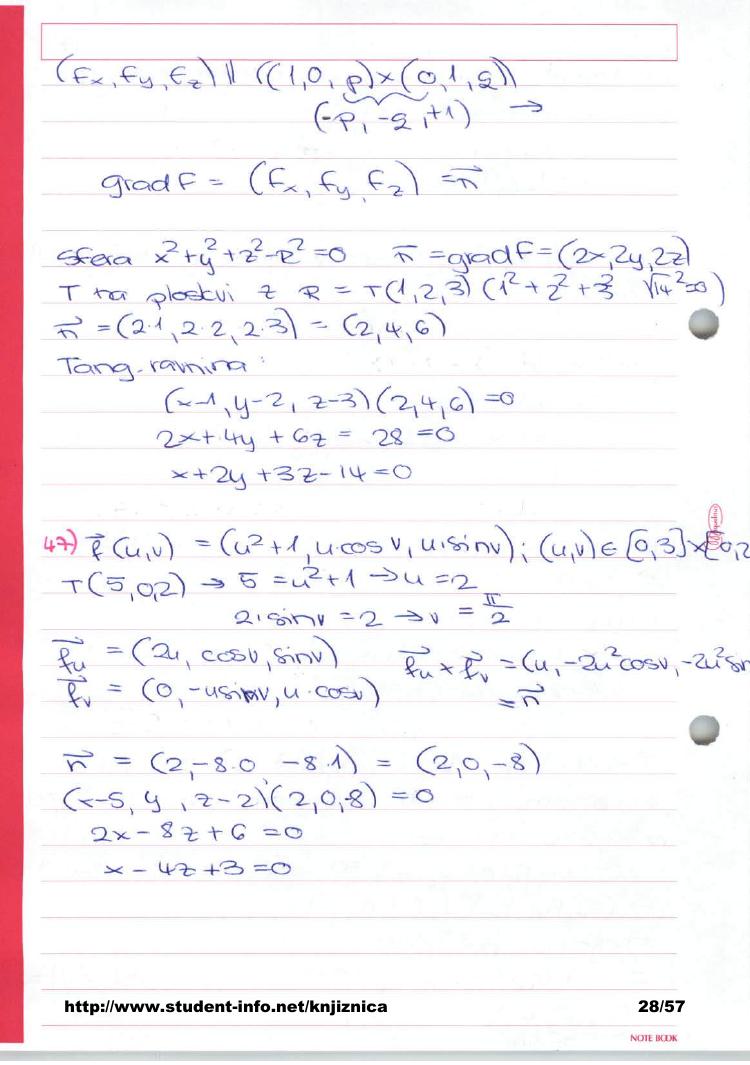 (Fx, Fy, Fz) || ((1,0,p)×(0,1,q))
(-p, -q, +1) →
grad F = (Fx, Fy, Fz) = n⃗
sfera x²+y²+z²-R²=0 n⃗ = grad F = (2x, 2y, 2z)
T na ploskvi z R = T(1,2,3) (1²+2²+3² √14²=0)
n⃗ = (2·1, 2·2, 2·3) = (2,4,6)
Tang. ravnina:
(x-1, y-2, z-3)(2,4,6) = 0
2x+4y+6z = 28 = 0
x+2y+3z-14=0
47) r⃗(u,v) = (u²+1, u·cos v, u·sin v); (u,v) ∈ [0,3]×[0,2
T(5,0,2) → 5=u²+1 → u=2
2·sin v = 2 → v = π/2
r⃗u = (2u, cos v, sin v) r⃗u × r⃗v = (u, -2u²cos v, -2u²sin
r⃗v = (0, -u sin v, u·cos v) = n⃗
n⃗ = (2, -8·0, -8·1) = (2,0,-8)
(x-5, y, z-2)(2,0,-8) = 0
2x-8z+6=0
x-4z+3=0
http://www.student-info.net/knjiznica 28/57
NOTE BOOK